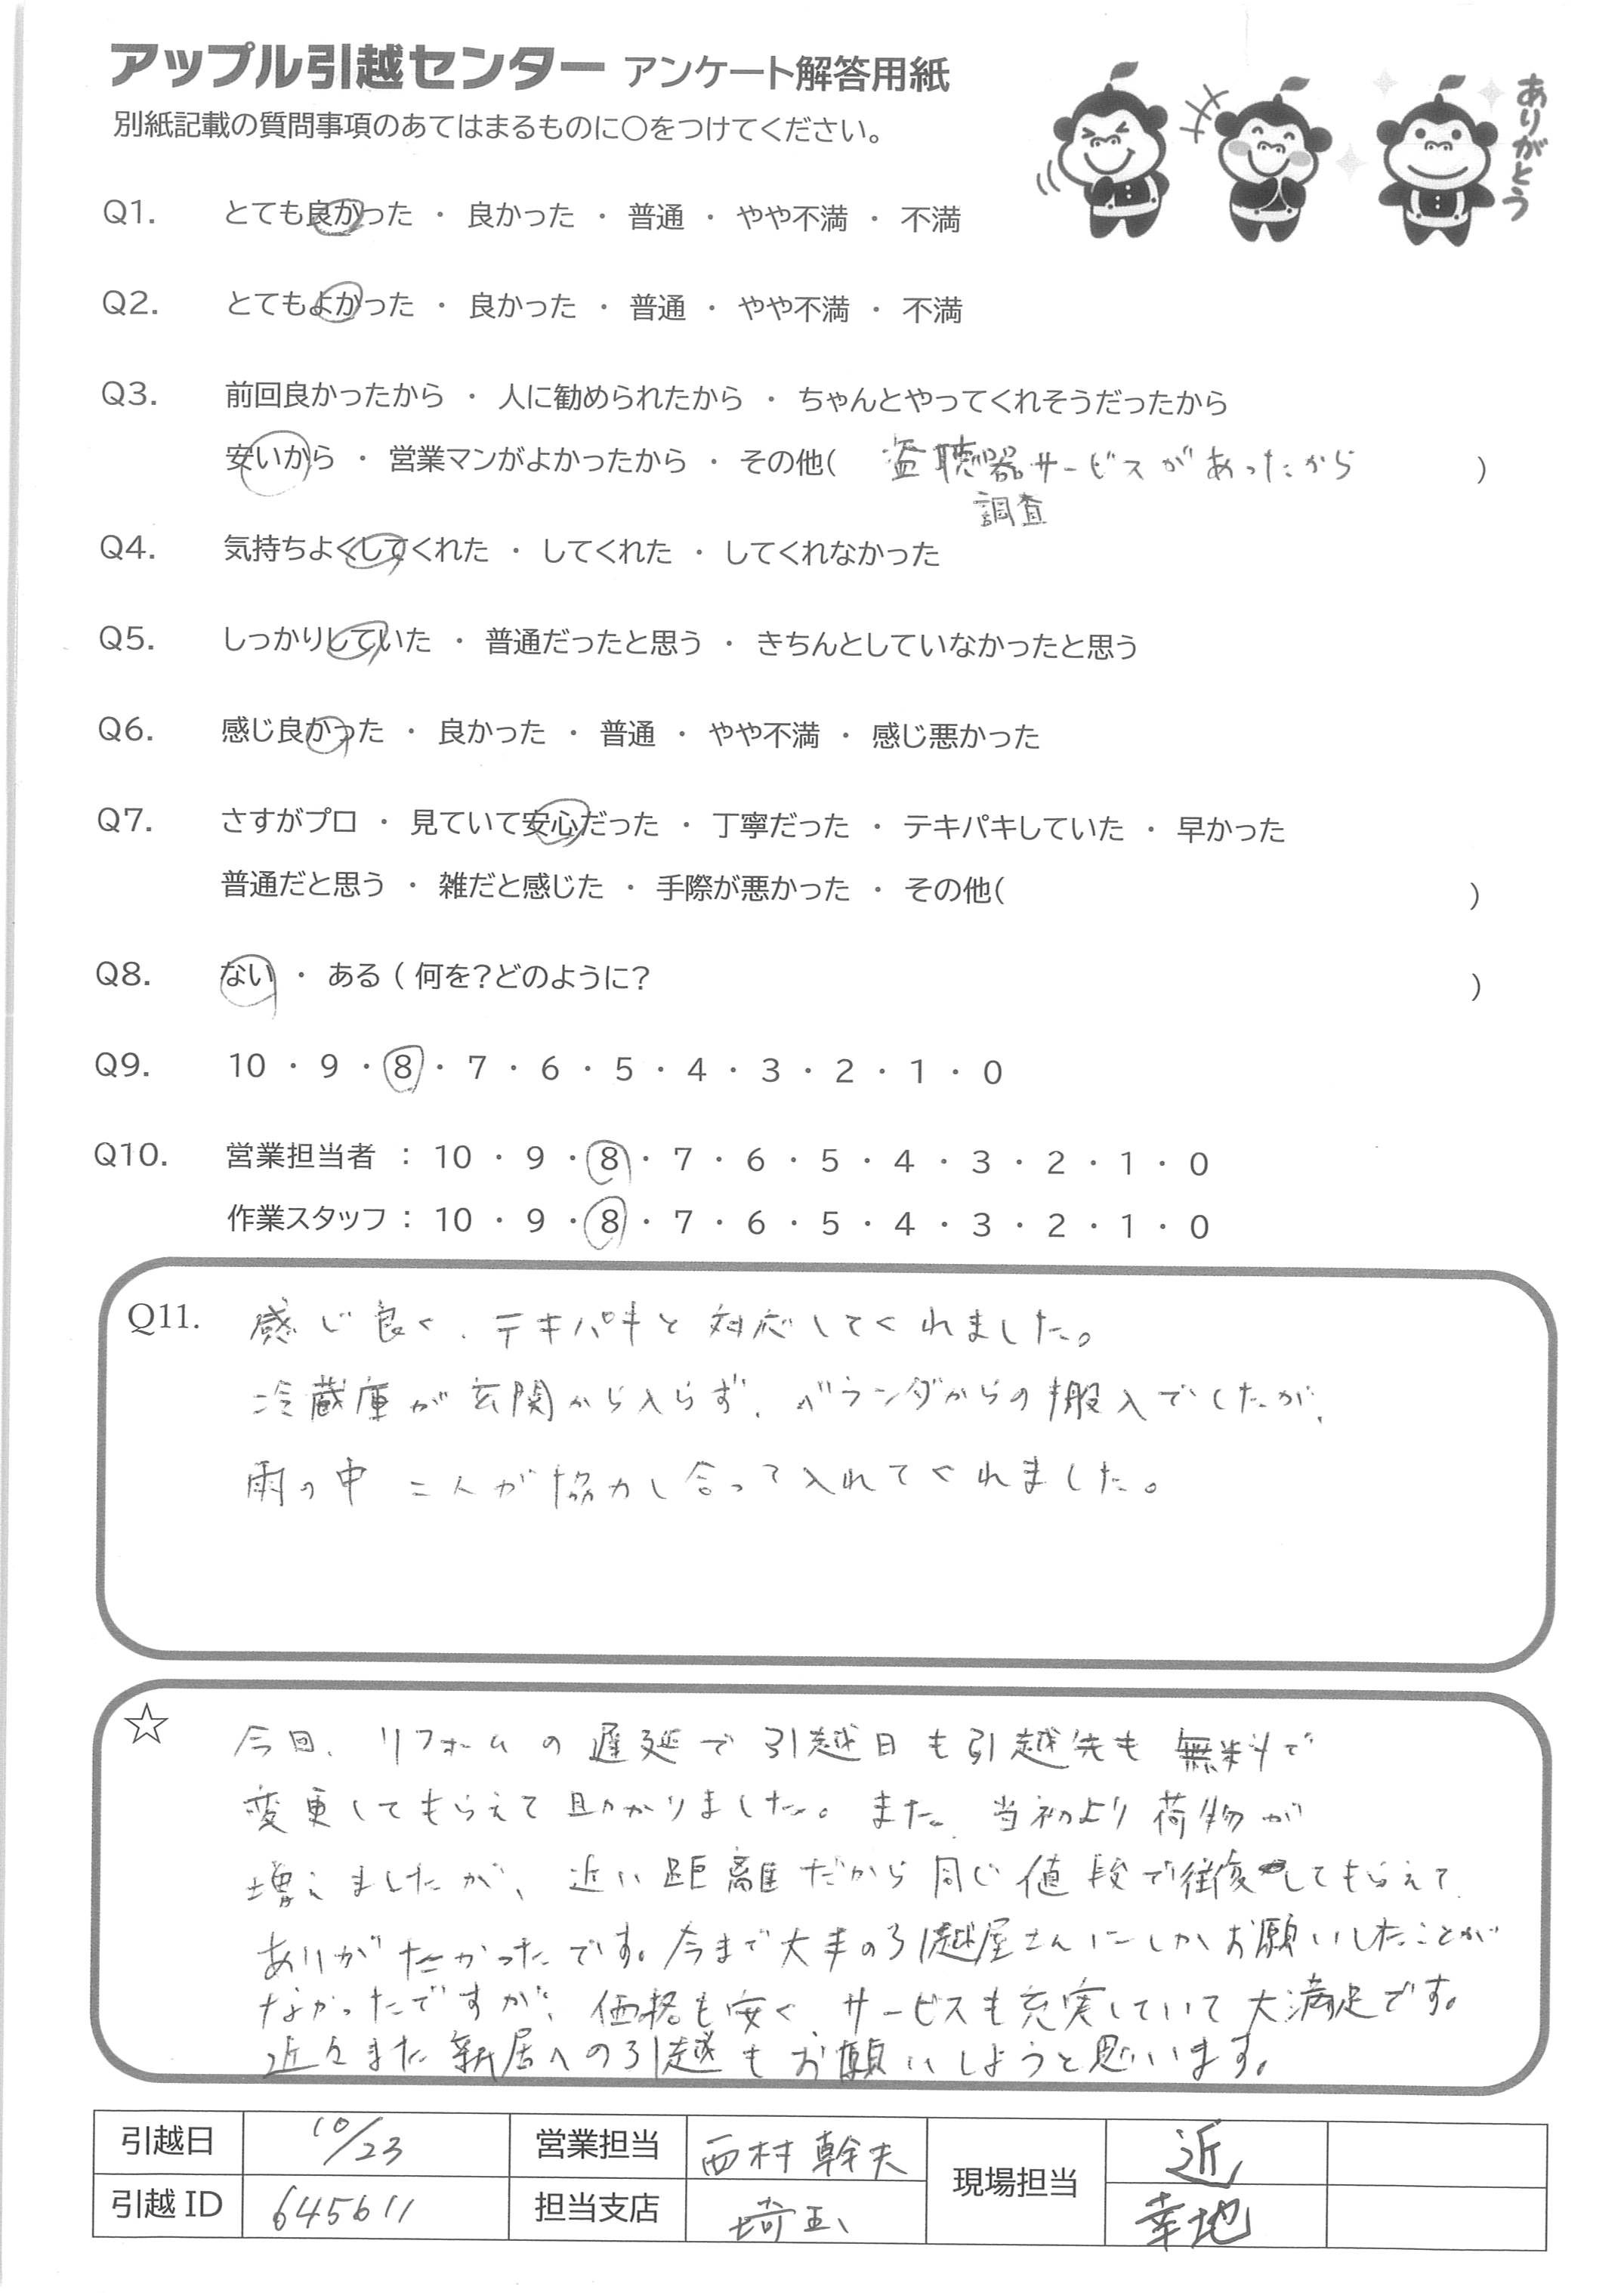 アップル引越センター アンケート解答用紙
別紙記載の質問事項のあてはまるものに○をつけてください。
ありがとう
Q1. とても良かった ・ 良かった ・ 普通 ・ やや不満 ・ 不満
Q2. とてもよかった ・ 良かった ・ 普通 ・ やや不満 ・ 不満
Q3. 前回良かったから ・ 人に勧められたから ・ ちゃんとやってくれそうだったから
安いから ・ 営業マンがよかったから ・ その他( 盗聴器サービスがあったから )
調査
Q4. 気持ちよくしてくれた ・ してくれた ・ してくれなかった
Q5. しっかりしていた ・ 普通だったと思う ・ きちんとしていなかったと思う
Q6. 感じ良かった ・ 良かった ・ 普通 ・ やや不満 ・ 感じ悪かった
Q7. さすがプロ ・ 見ていて安心だった ・ 丁寧だった ・ テキパキしていた ・ 早かった
普通だと思う ・ 雑だと感じた ・ 手際が悪かった ・ その他( )
Q8. ない ・ ある ( 何を?どのように? )
Q9. 10 ・ 9 ・ 8 ・ 7 ・ 6 ・ 5 ・ 4 ・ 3 ・ 2 ・ 1 ・ 0
Q10. 営業担当者 : 10 ・ 9 ・ 8 ・ 7 ・ 6 ・ 5 ・ 4 ・ 3 ・ 2 ・ 1 ・ 0
作業スタッフ : 10 ・ 9 ・ 8 ・ 7 ・ 6 ・ 5 ・ 4 ・ 3 ・ 2 ・ 1 ・ 0
Q11. 感じ良く、テキパキと対応してくれました。
冷蔵庫が玄関から入らず、ベランダからの搬入でしたが、
雨の中 二人が協力し合って入れてくれました。
☆ 今回、リフォームの遅延で引越日も引越先も無料で
変更してもらえて助かりました。また、当初より荷物が
増えましたが、近い距離だから同じ値段で往復してもらえて
ありがたかったです。今まで大手の引越屋さんにしかお願いしたことが
なかったですが、価格も安く、サービスも充実していて大満足です。
近々また新居への引越もお願いしようと思います。
引越日 10/23 営業担当 西村幹夫 現場担当 近
引越ID 645611 担当支店 埼玉 幸地